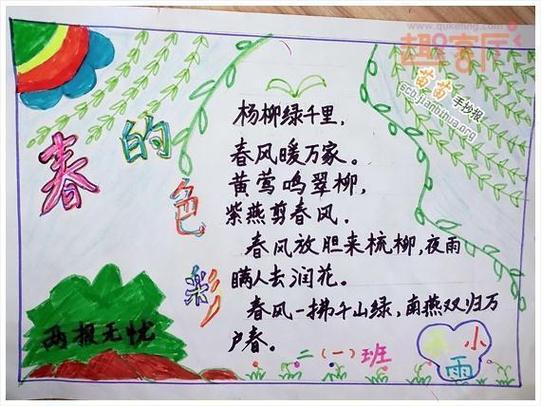 www.quketing.com
趣客厅
苗苗手抄报
scb.jianbihua.org
春的色彩
杨柳绿千里,
春风暖万家。
黄莺鸣翠柳,
紫燕剪春风.
春风放胆来梳柳,夜雨
瞒人去润花。
春风一拂千山绿,南燕双归万
户春。
二(一)班
小雨
两报无忧